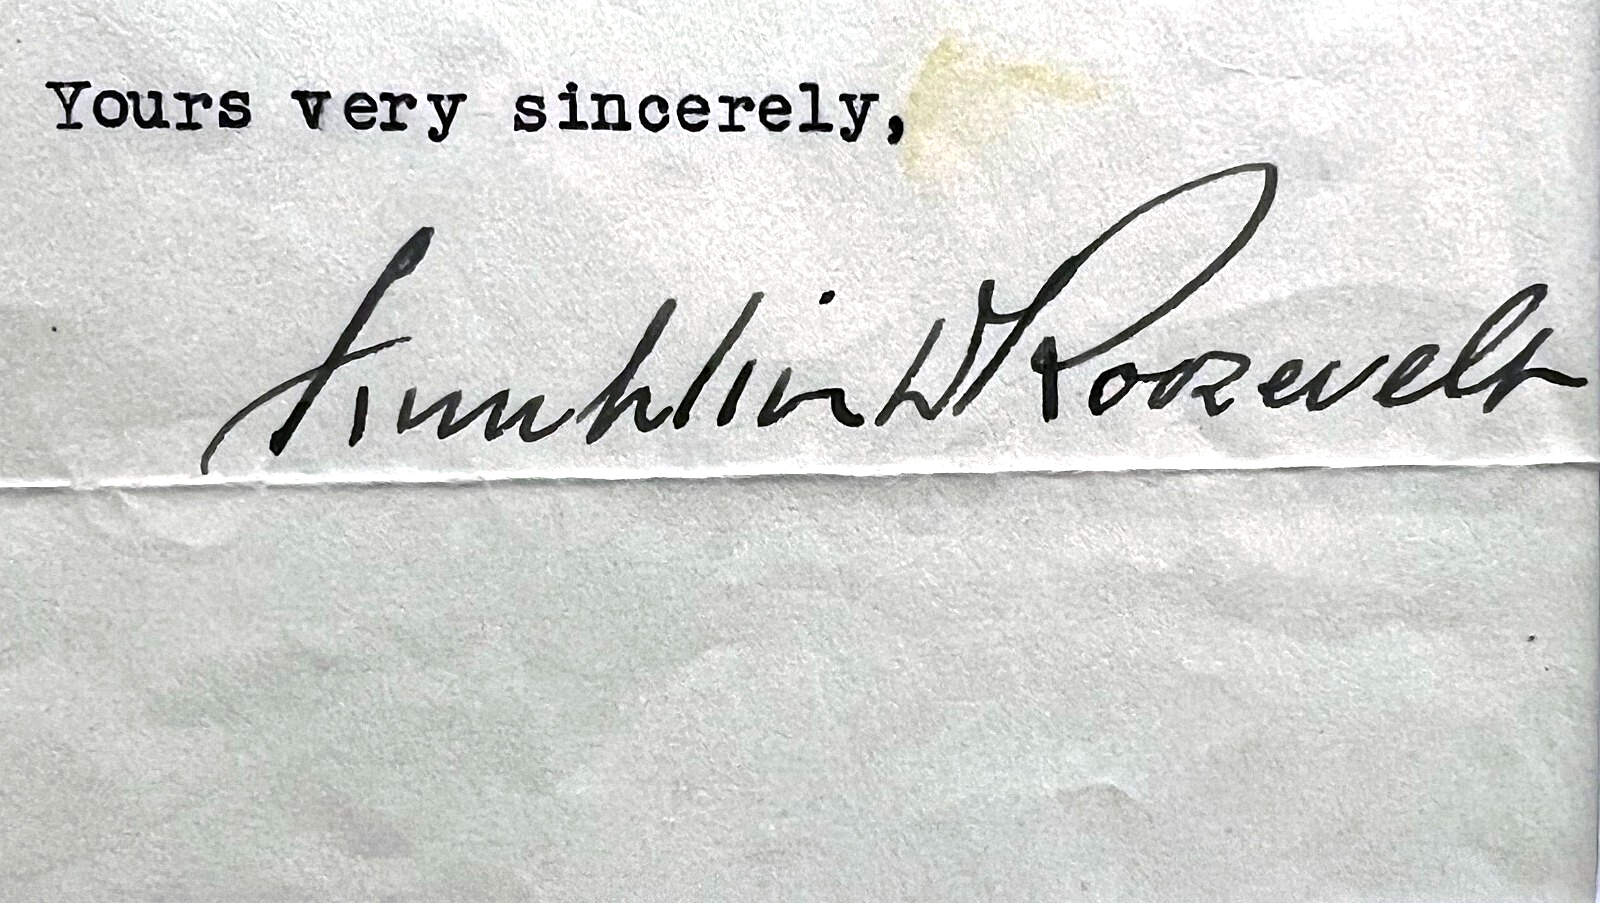 Yours very sincerely,
Franklin D Roosevelt